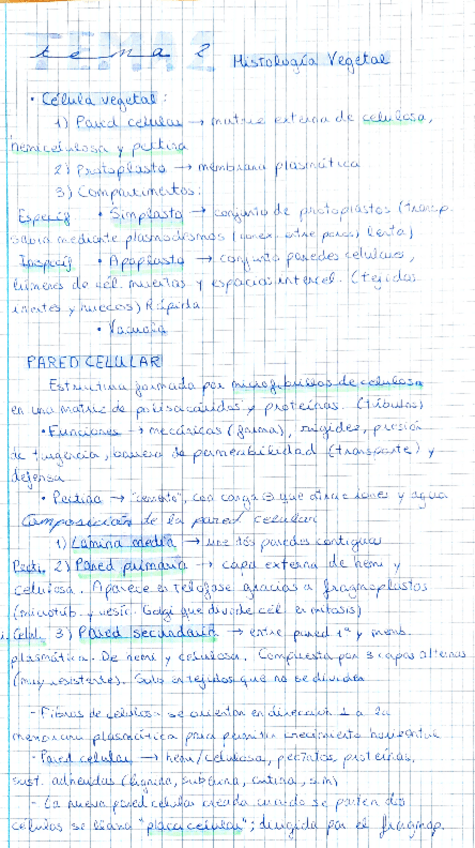 tema 2 Histología Vegetal
• Célula vegetal:
1) Pared celular → matriz externa de celulosa,
hemicelulosa y pectina
2) Protoplasto → membrana plasmática
3) Compartimentos:
Específ • Simplasto → conjunto de protoplastos (transp.
savia mediante plasmodesmos (conex. entre poros) lenta)
Inespecíf • Apoplasto → conjunto paredes celulares,
lúmenes de cél. muertas y espacios intercel. (tejidos
inertes y huecos) Rápida
• Vacuola
PARED CELULAR
Estructura formada por microfibrillas de celulosa
en una matriz de polisacáridos y proteínas. (túbulos)
• Funciones → mecánicas (forma), rigidez, presión
de turgencia, barrera de permeabilidad (transporte) y
defensa
• Pectina → "cemento", con carga ⊖ que atrae iones y agua
Composición de la pared celular
1) Lámina media → une dos paredes contiguas
Pecti. 2) Pared primaria → capa externa de hemi y
celulosa. Aparece en telofase gracias a fragmoplastos
(microtúb. y vesíc. Golgi que divide cél en mitosis)
Celul. 3) Pared secundaria → entre pared 1ª y memb.
plasmática. De hemi y celulosa. Compuesta por 3 capas
(muy resistentes). Solo en tejidos que no se dividen
- Fibras de celulosa se orientan en dirección ⊥ a la
membrana plasmática para permitir crecimiento horizontal
- Pared celular → hemi/celulosa, pectatos, proteínas,
sust. adheridas (lignina, suberina, cutina,
- La nueva pared celular creada cuando se parten dos
células se llama "placa celular"; dirigida por el fragmop.